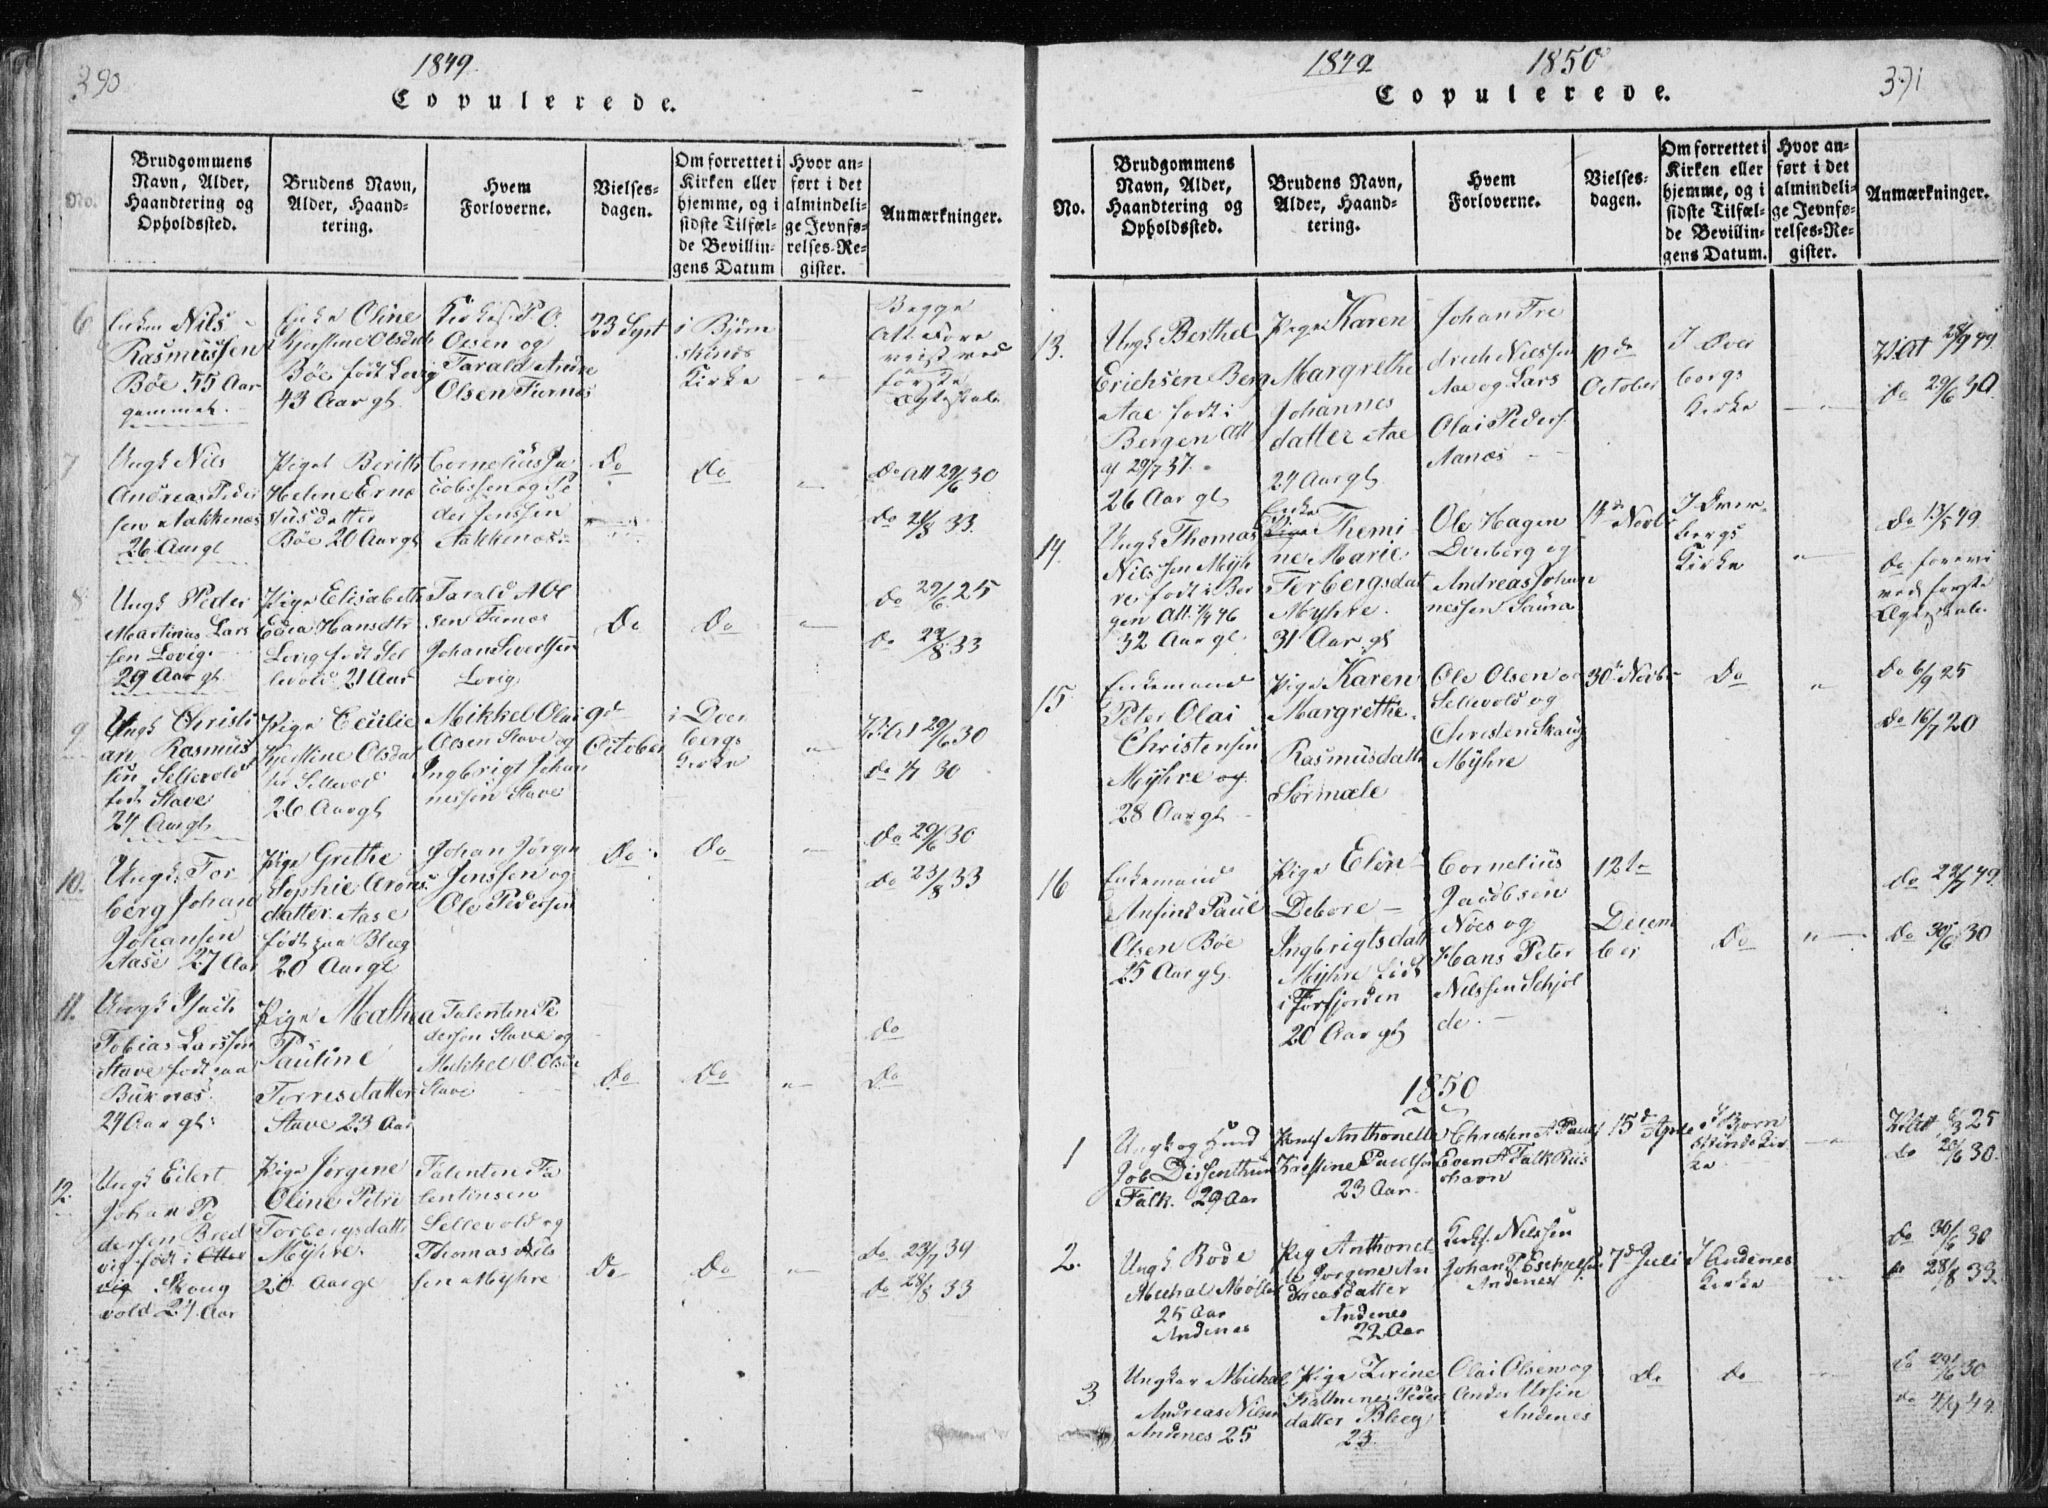 390
1849
Copulerede.
No.
Brudgommens
Navn, Alder,
Haandtering og
Opholdssted.
Brudens Navn,
Alder, Haand-
tering.
Hvem
Forloverne.
Vielses-
dagen.
Om forrettet i
Kirken eller
hjemme, og i
sidste Tilfæl-
de Bevillin-
gens Datum
Hvor an-
ført i det
almindeli-
ge Jevnfø-
relses-Re-
gister.
Anmærkninger.
6
Nils
Rasmussen
Bøe 55 Aar
gammel.
Enke Oline
Kjerstine Olsdat
Bøe født Lovig
43 Aar gl.
Olsen og
Tarald Andre
Olsen Turnes
23 Sept
i Bjørn
skinds
Kirke
Begge
Att Fore
viist ved
første
Egteskab.
7
Ungk Nils
Andreas Peder
sen Aakkenæs
26 Aar gl
Pige Berith
Helene Erna
tusdatter
Bøe 20 Aar gl
Cornelius Ja
cobssen og Pe
der Jenssen
Aakkenæs.
Do
Do
Do Att 29/6 30
Do 21/8 33.
8
Ungk Peder
Martinus Lars
sen Lovig
29 Aar gl.
Pige Elisabeth
Edea Hansdtr
Lovig født Sel
levold 21 Aar
Tarald A Ol
sen Turnes
Johan Sivertsen
Lovig
Do
Do
Do 29/6 25
Do 22/8 33
9
Ungk Christi
an Rasmus
sen Sellevold
født Stave
24 Aar gl
Pige Cecilie
Kjerstine Olsdat
ter Sellevod
26 Aar gl
Mikkel Olai
Olsen Stave og
Ingbrigt Johan
nessen Stave
9de
October
i Dver
bergs
Kirke
V. Att 29/6 30
Do 1/7 30
10.
Ungk: Tor
berg Johan
Johansen
Aase 27 Aar
Pige Grethe
Sophie Arons
datter Aase
født paa Bleeg
20 Aar gl
Johan Jørgen
Jenssen og
Ole Pedersen
Do
Do
Do 29/6 30
Do 23/8 33
11.
Ungk Isach
Tobias Larssen
Stave født paa
Buknæs.
24 Aar gl:
Pige Mathea
Pauline
Torresdatter
Stave 23 Aar
Falentin Pe
dersen Stave og
Mikkel O Olsen
Stave
Do
Do
Do
Do
12.
Ungk Eilert
Johan Pe
dersen Bred
vig født i Otter
vig Skoug
vold 24 Aar
Pige Jørgene
Oline Petri
Torbergsdatt
Myhre
20 Aar gl
Falentin Fa
lentinsen
Sellevold og
Thomas Nils
sen Myhre
Do
Do
Do 23/7 39
Do 28/8 33
1849
1850
391
Copulerede.
No.
Brudgommens
Navn, Alder,
Haandtering og
Opholdssted.
Brudens Navn,
Alder, Haand-
tering.
Hvem
Forloverne.
Vielses-
dagen.
Om forrettet i
Kirken eller
hjemme, og i
sidste Tilfæl-
de Bevillin-
gens Datum.
Hvor an-
ført i det
almindeli-
ge Jevnfø-
relses-Re-
gister.
Anmærkninger.
13.
Ungk Berthel
Erichsen Berg
Aae født i
Bergen Att
af 29/7 37.
26 Aar gl
Pige Karen
Margrethe
Johannes
datter Aae
24 Aar gl
Johan Fre
drich Nilssen
Aae og Lars
Olai Peders.
Aanæs
10de
October
I Dver
bergs
Kirke
V. Att 28/9 49
Do 29/6 30.
14.
Ungk Thomas
Nilssen Myh
re født i Ber
gen Att. 7/9 46
32 Aar gl
Enke
Pige Themi
ne Marie
Torbergsdat
Myhre.
31 Aar gl
Ole Hagen
Dverberg og
Andreas Johan
nessen Saura
14de Novbr
I Dver-
bergs
Kirke
Do 13/5 49
Do forevi
ved første
Egteskab.
15
Enkemand
Peter Olai
Christensen
Myhre og
28 Aar gl
Pige Karen
Margrethe
Rasmusdatt
Sørmæle
Ole Olsen
Sellevold og
Christen Skaug
Myhre
30te Novbr
Do
Do 6/9 25
Do 16/7 20
16
Enkemand
Ansind Paul
Olsen Bøe
25 Aar gl.
Pige Elen
Debore
Ingbrigtsdatt
Myhre født
i Forfjorden
20 Aar gl
Cornelius
Jacobsen
Nøes og
Hans Peter
Nilssen Schjol
de.
12te
Decem
ber
Do
Do 22/7 49.
Do 30/6 30
1850
1
Ungk og
Job Dissenthun
Falk. 29 Aar
Anthonette
Kristine Paulsen
23 Aar.
Christen A Pauls
Even A Falk Riis
havn
15d Aprl
I Bjørn
skinds Kir
ke
V. Att 6/3 25
Do 29/6 30.
2.
Ungk Bode
Michal
25 Aar
Andenes
Pig Anthonet-
te Jørgine An
dreasdatter
Andenes
22 Aar
Nilssen
Johan P
Andenes
7d Juli
I Andenes
Kirke
Do 30/6 30
Do 28/8 33
3.
Ungkar Michal
Andreas Nilsen
Andenes 25
Pige Zerine
Peder
datter Bleeg
23
Olai Olsen og
Andenes
Do
Do
Do 29/6 30
Do